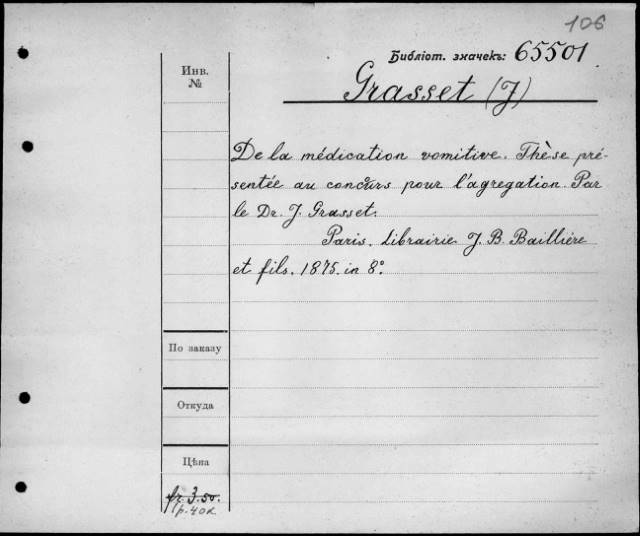 106
Библіот. значекъ: 65501
Инв.
№
Grasset (J)
De la médication vomitive. Thèse pré-
sentée au concours pour l'agregation. Par
le Dr. J. Grasset.
Paris. Librairie J. B. Baillière
et fils. 1875. in 8°.
По заказу
Откуда
Цѣна
fr. 3.50.
р. 40к